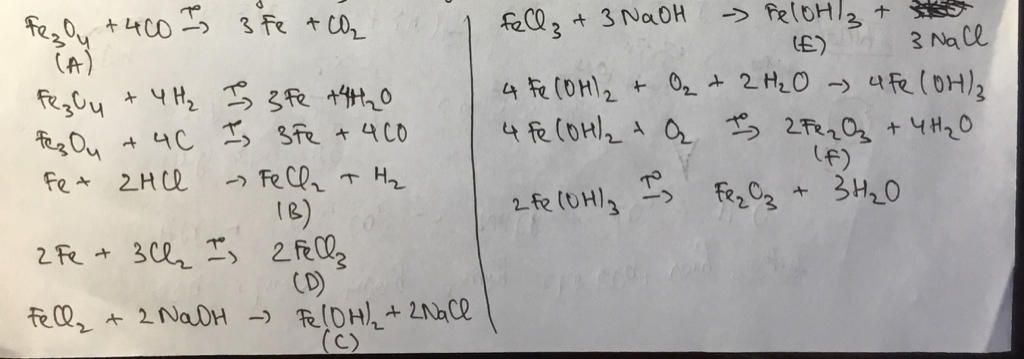 Fe₃O₄ + 4CO →(T°) 3Fe + CO₂
(A)
Fe₃O₄ + 4H₂ →(T°) 3Fe + 4H₂O
Fe₃O₄ + 4C →(T°) 3Fe + 4CO
Fe + 2HCl → FeCl₂ + H₂
(B)
2Fe + 3Cl₂ →(T°) 2FeCl₃
(D)
FeCl₂ + 2NaOH → Fe(OH)₂ + 2NaCl
(C)
FeCl₃ + 3NaOH → Fe(OH)₃ +
(E) 3NaCl
4Fe(OH)₂ + O₂ + 2H₂O → 4Fe(OH)₃
4Fe(OH)₂ + O₂ →(T°) 2Fe₂O₃ + 4H₂O
(F)
2Fe(OH)₃ →(T°) Fe₂O₃ + 3H₂O